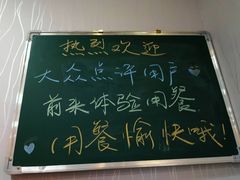 热烈欢迎
大众点评用户
前来体验用餐
用餐愉快哦!